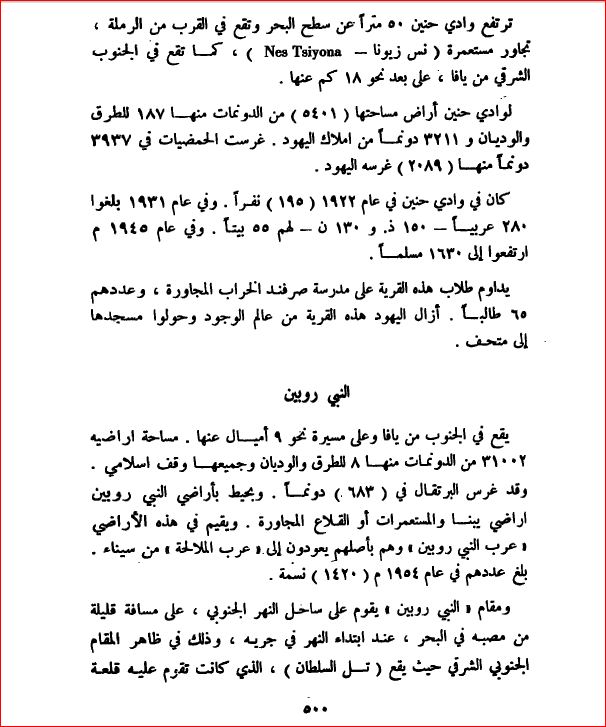 ترتفع وادي حنين ٥٠ متراً عن سطح البحر وتقع في القرب من الرملة ،
تجاور مستعمرة ( نس زيونا – Nes Tsiyona ) ، كما تقع في الجنوب
الشرقي من يافا ، على بعد نحو ١٨ كم عنها .
لوادي حنين أراض مساحتها ( ٥٤٠١ ) من الدونمات منها ١٨٧ للطرق
والوديان و ٣٢١١ دونماً من املاك اليهود . غرست الحمضيات في ٣٩٣٧
دونماً منها ( ٢٠٨٩ ) غرسه اليهود .
كان في وادي حنين في عام ١٩٢٢ ( ١٩٥ ) نفراً . وفي عام ١٩٣١ بلغوا
٢٨٠ عربياً – ١٥٠ ذ. و ١٣٠ ن – لهم ٥٥ بيتاً . وفي عام ١٩٤٥ م
ارتفعوا إلى ١٦٣٠ مسلماً .
يداوم طلاب هذه القرية على مدرسة صرفند الخراب المجاورة ، وعددهم
٦٥ طالباً . أزال اليهود هذه القرية من عالم الوجود وحولوا مسجدها
إلى متحف .
النبي روبين
يقع في الجنوب من يافا وعلى مسيرة نحو ٩ أميال عنها . مساحة اراضيه
٣١٠٠٢ من الدونمات منها ٨ للطرق والوديان وجميعها وقف اسلامي .
وقد غرس البرتقال في ( ٦٨٣ ) دونماً . ويحيط بأراضي النبي روبين
اراضي يبنا والمستعمرات أو القلاع المجاورة . ويقيم في هذه الأراضي
« عرب النبي روبين » وهم بأصلهم يعودون إلى « عرب الملالحة » من سيناء .
بلغ عددهم في عام ١٩٥٤ م ( ١٤٢٠ ) نسمة .
ومقام « النبي روبين » يقوم على ساحل النهر الجنوبي ، على مسافة قليلة
من مصبه في البحر ، عند ابتداء النهر في جريه ، وذلك في ظاهر المقام
الجنوبي الشرقي حيث يقع ( تل السلطان ) ، الذي كانت تقوم عليه قلعة
٥٠٠